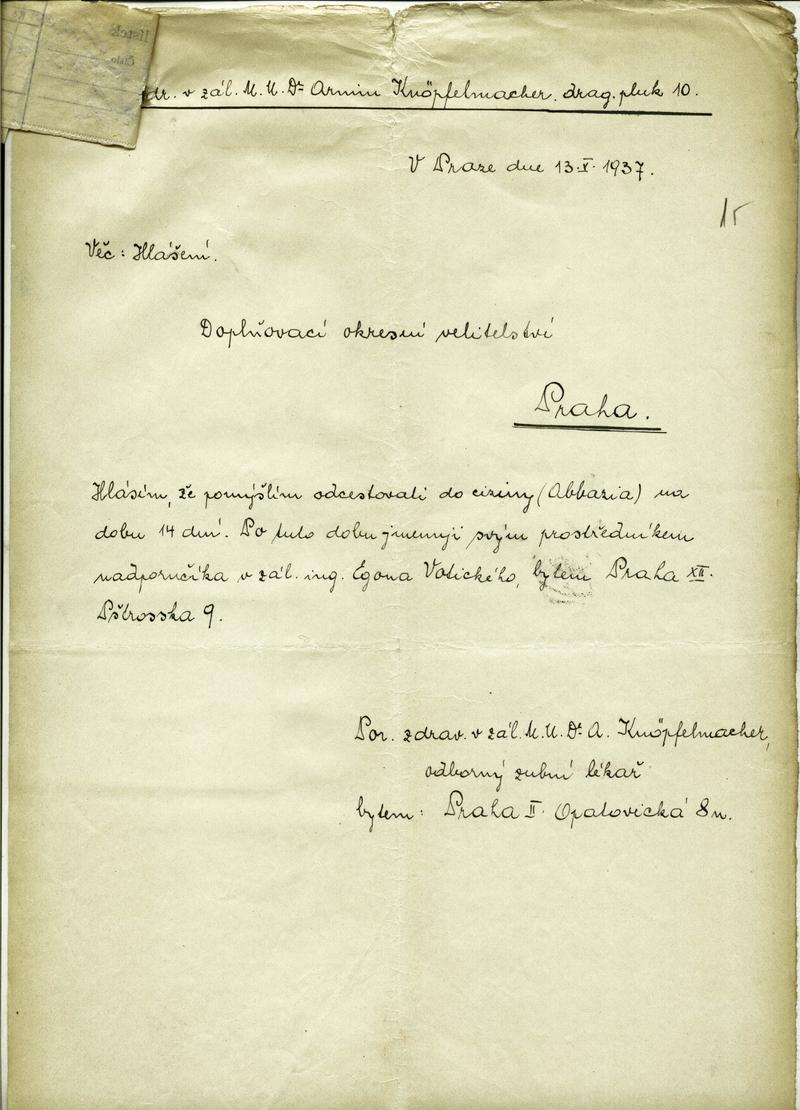 dr. v zál. M. U. Dr. Armin Knöpfelmacher, drag. pluk 10.
V Praze dne 13.X.1937.
15
Věc: Hlášení.
Doplňovací okresní velitelství
Praha.
Hlásím, že pomýšlím odcestovati do ciziny (Abbazia) na
dobu 14 dní. Po tuto dobu jmenuji svým prostředníkem
nadporučíka v zál. ing. Egona Votického, bytem Praha XII.
Pštrosska 9.
Por. zdrav. v zál. M.U.Dr. A. Knöpfelmacher,
odborný zubní lékař
bytem: Praha II. Opatovická 8n.